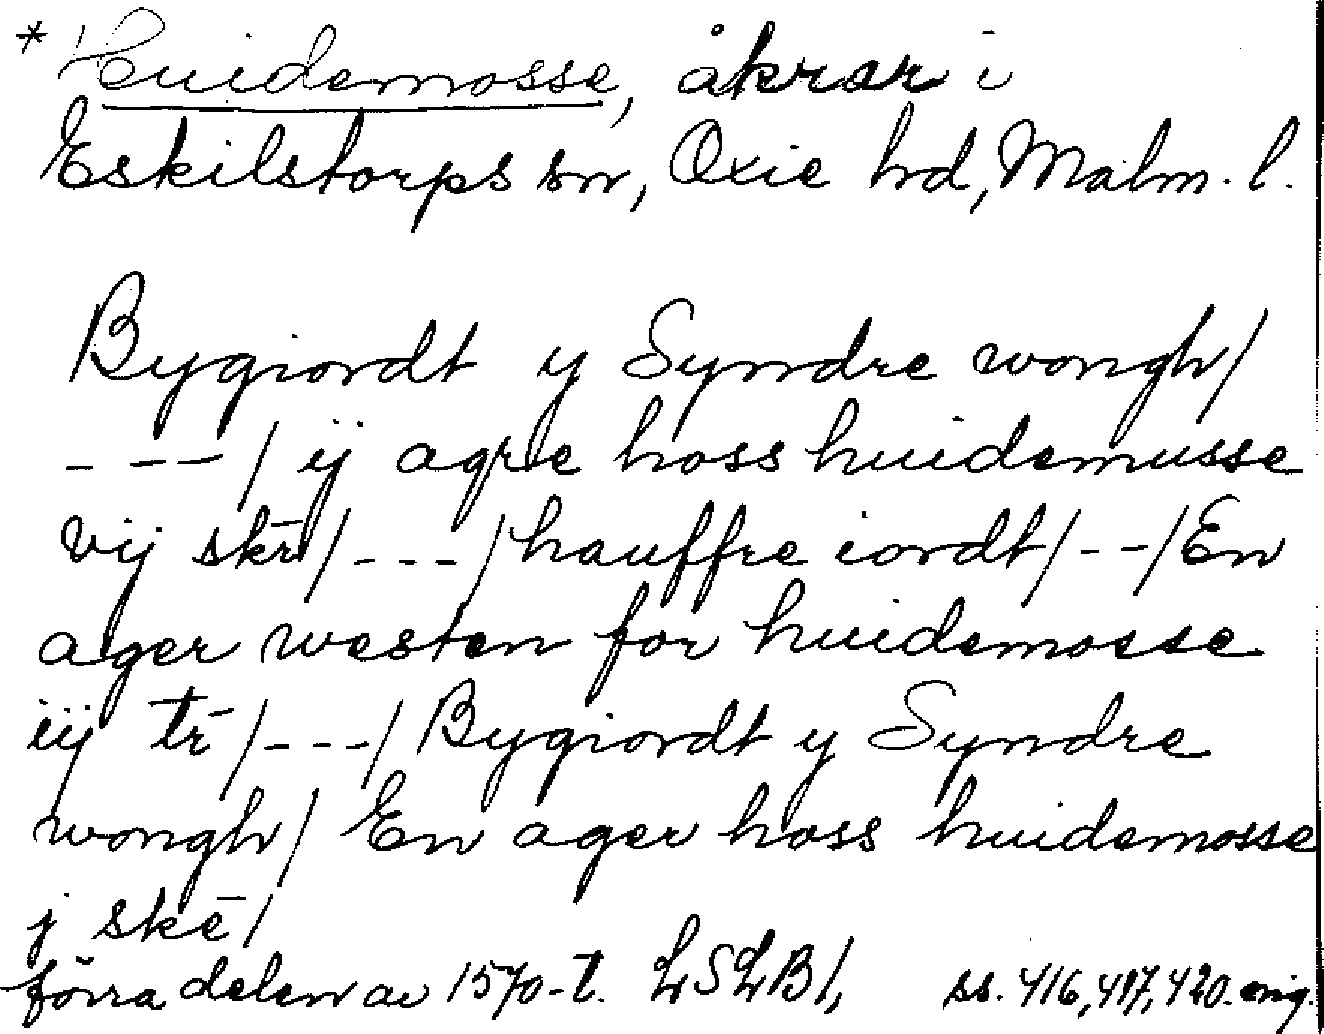 * Huidemosse, åkrar i
Eskilstorps sn, Oxie hd, Malm. l.
Bygiordt y Syndre wongh/
- - - / ij agre hoss huidemusse
vij skr̄/ - - - / hauffre iordt/ - - /En
ager westen for huidemosse
iij tr̄ / - - - / Bygiordt y Syndre
wongh/ En ager hoss huidemosse
j skē/
förra delen av 1570-t. LSLB 1, ss. 416, 417, 420. orig.